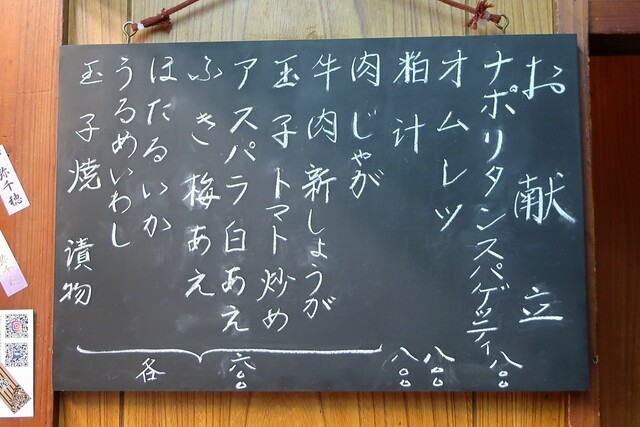 お献立
ナポリタンスパゲッティ 八〇〇
オムレツ 八〇〇
粕汁 八〇〇
肉じゃが
牛肉新しょうが
玉子トマト炒め
アスパラ白あえ
ふき梅あえ
ほたるいか
うるめいわし
玉子焼 漬物
各 六〇〇